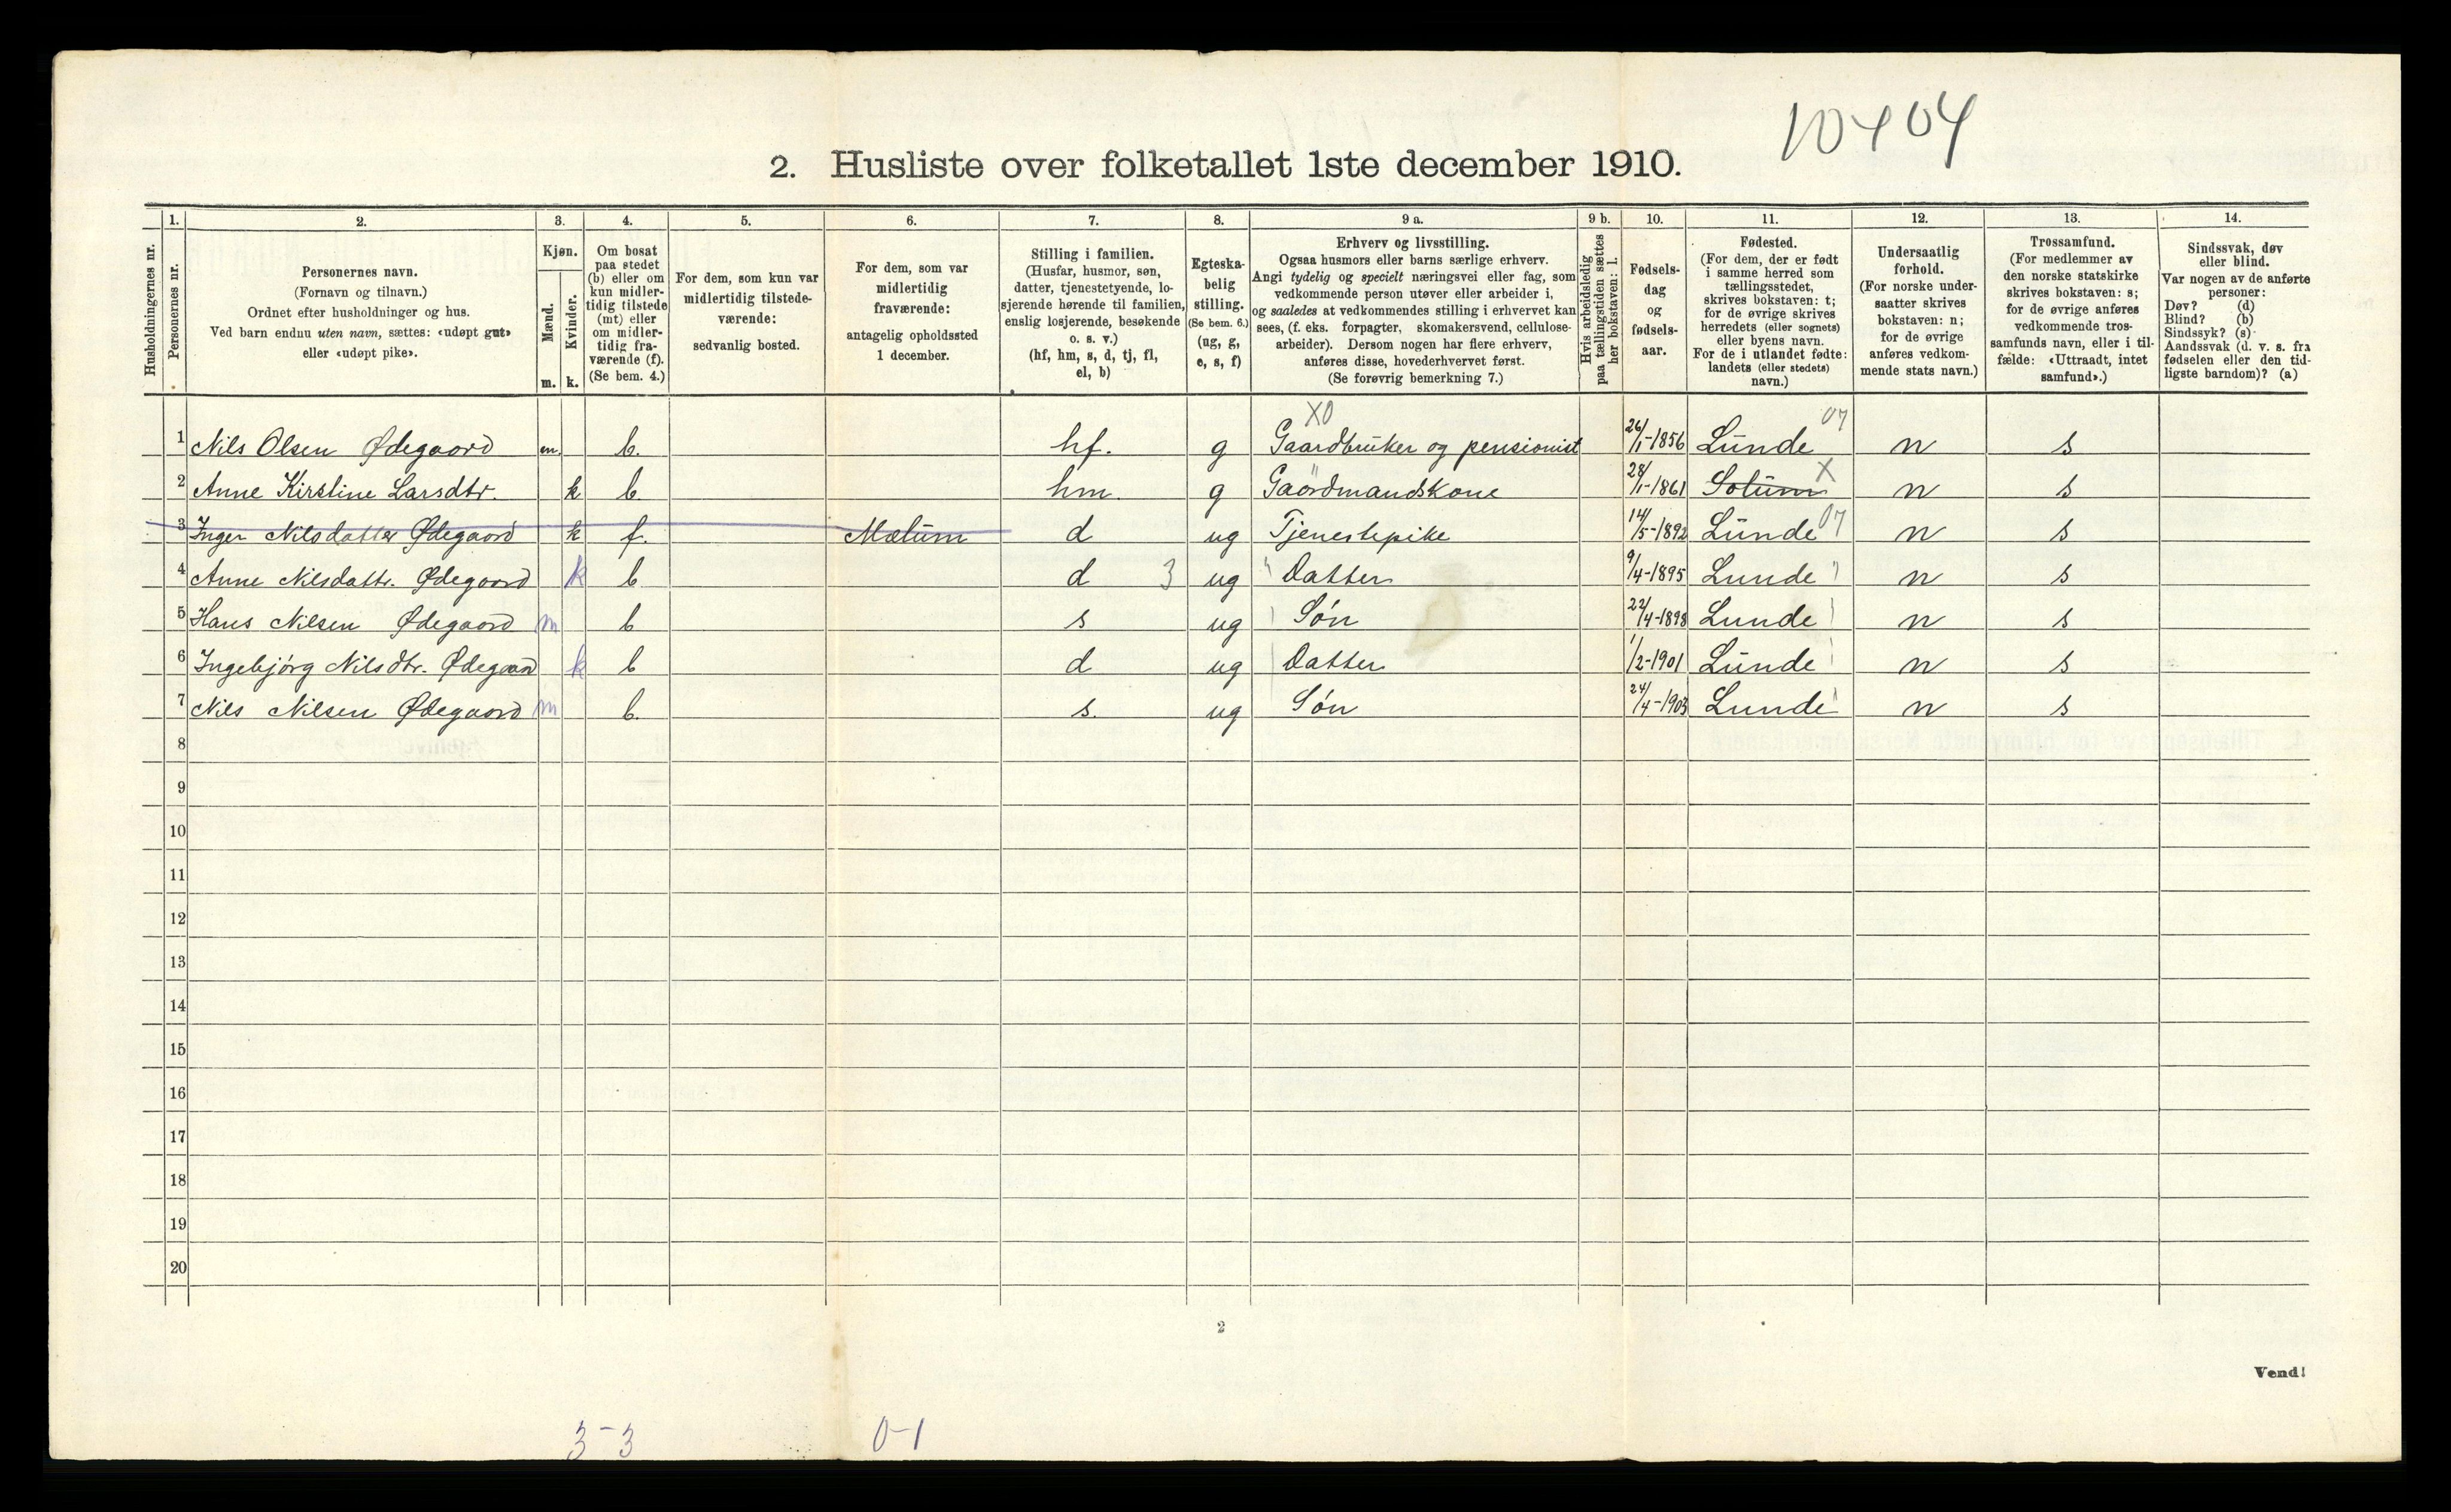 10404
2. Husliste over folketallet 1ste december 1910.
1. 2. 3. 4. 5. 6. 7. 8. 9 a. 9 b. 10. 11. 12. 13. 14.
Husholdningernes nr.
Personernes nr.
Personernes navn.
(Fornavn og tilnavn.)
Ordnet efter husholdninger og hus.
Ved barn endnu uten navn, sættes: «udøpt gut»
eller «udøpt pike».
Kjøn.
Mænd.
Kvinder.
m. k.
Om bosat
paa stedet
(b) eller om
kun midler-
tidig tilstede
(mt) eller
om midler-
tidig fra-
værende (f).
(Se bem. 4.)
For dem, som kun var
midlertidig tilstede-
værende:
sedvanlig bosted.
For dem, som var
midlertidig
fraværende:
antagelig opholdssted
1 december.
Stilling i familien.
(Husfar, husmor, søn,
datter, tjenestetyende, lo-
sjerende hørende til familien,
enslig losjerende, besøkende
o. s. v.)
(hf, hm, s, d, tj, fl,
el, b)
Egteska-
belig
stilling.
(Se bem. 6.)
(ug, g,
e, s, f)
Erhverv og livsstilling.
Ogsaa husmors eller barns særlige erhverv.
Angi tydelig og specielt næringsvei eller fag, som
vedkommende person utøver eller arbeider i,
og saaledes at vedkommendes stilling i erhvervet kan
sees, (f. eks. forpagter, skomakersvend, cellulose-
arbeider). Dersom nogen har flere erhverv,
anføres disse, hovederhvervet først.
(Se forøvrig bemerkning 7.)
Hvis arbeidsledig
paa tællingstiden sættes
her bokstaven: l.
Fødsels-
dag
og
fødsels-
aar.
Fødested.
(For dem, der er født
i samme herred som
tællingsstedet,
skrives bokstaven: t;
for de øvrige skrives
herredets (eller sognets)
eller byens navn.
For de i utlandet fødte:
landets (eller stedets)
navn.)
Undersaatlig
forhold.
(For norske under-
saatter skrives
bokstaven: n;
for de øvrige
anføres vedkom-
mende stats navn.)
Trossamfund.
(For medlemmer av
den norske statskirke
skrives bokstaven: s;
for de øvrige anføres
vedkommende tros-
samfunds navn, eller i til-
fælde: «Uttraadt, intet
samfund».)
Sindssvak, døv
eller blind.
Var nogen av de anførte
personer:
Døv? (d)
Blind? (b)
Sindssyk? (s)
Aandssvak (d. v. s. fra
fødselen eller den tid-
ligste barndom)? (a)
X0 07
1 Nils Olsen Ødegaard m. b. hf. g Gaardbruker og pensionist 26/1-1856 Lunde n s
2 Anne Kirstine Larsdtr. k b hm. g Gaardmandskone 28/1-1861 Solum X n s
3 Inger Nilsdatter Ødegaard k f. Mælum d ug Tjenestepike 14/5-1892 Lunde 07 n s
4 Anne Nilsdattr. Ødegaard k b d 3 ug " Datter 9/4-1895 Lunde n s
5 Hans Nilsen Ødegaard m b s ug Søn 22/4-1898 Lunde n s
6 Ingebjørg Nilsdtr. Ødegaard k b d ug Datter 1/2-1901 Lunde n s
7 Nils Nilsen Ødegaard m b. s. ug Søn 24/4-1903 Lunde n s
8
9
10
11
12
13
14
15
16
17
18
19
20
2
Vend!
3-3 0-1